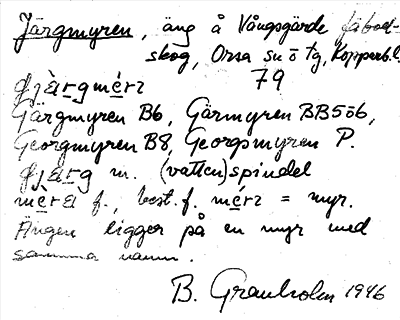 Järgmyren, äng å Vångsgärde fäbod-
skog, Orsa sn o tg, Kopparb. l.
79
g̸jàrgmèrz
Gärgmyren B6, Gärmyren BB5ö6,
Georgmyren B8, Georgsmyren P.
g̸jàrg m. (vatten)spindel
mèra f., best. f. mèrz = myr.
Ängen ligger på en myr med
samma namn.
B. Granholm 1946